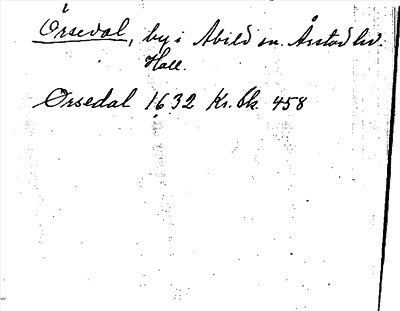 Örsedal, by i Abild sn. Årstad hd.
Hall.
Orsedal 1632 Kr. Sk. 458